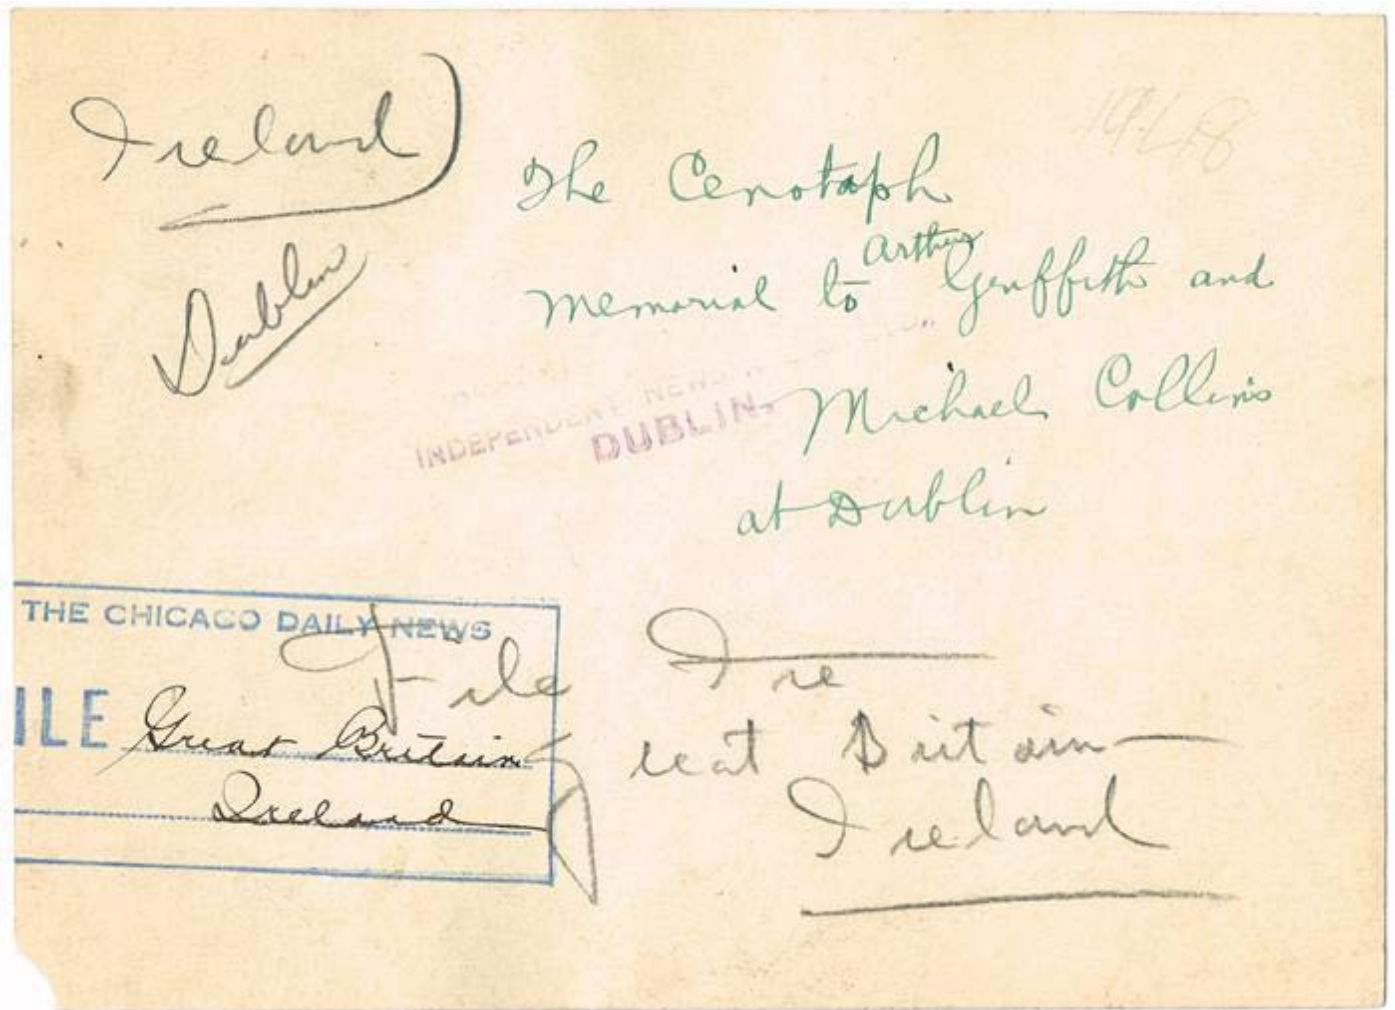 Ireland
Dublin
1948
The Cenotaph
Memorial to Arthur Griffith and
Michael Collins
at Dublin
INDEPENDENT NEWS
DUBLIN.
THE CHICAGO DAILY NEWS
ILE Great Britain
Ireland
File Ire
Great Britain
Ireland